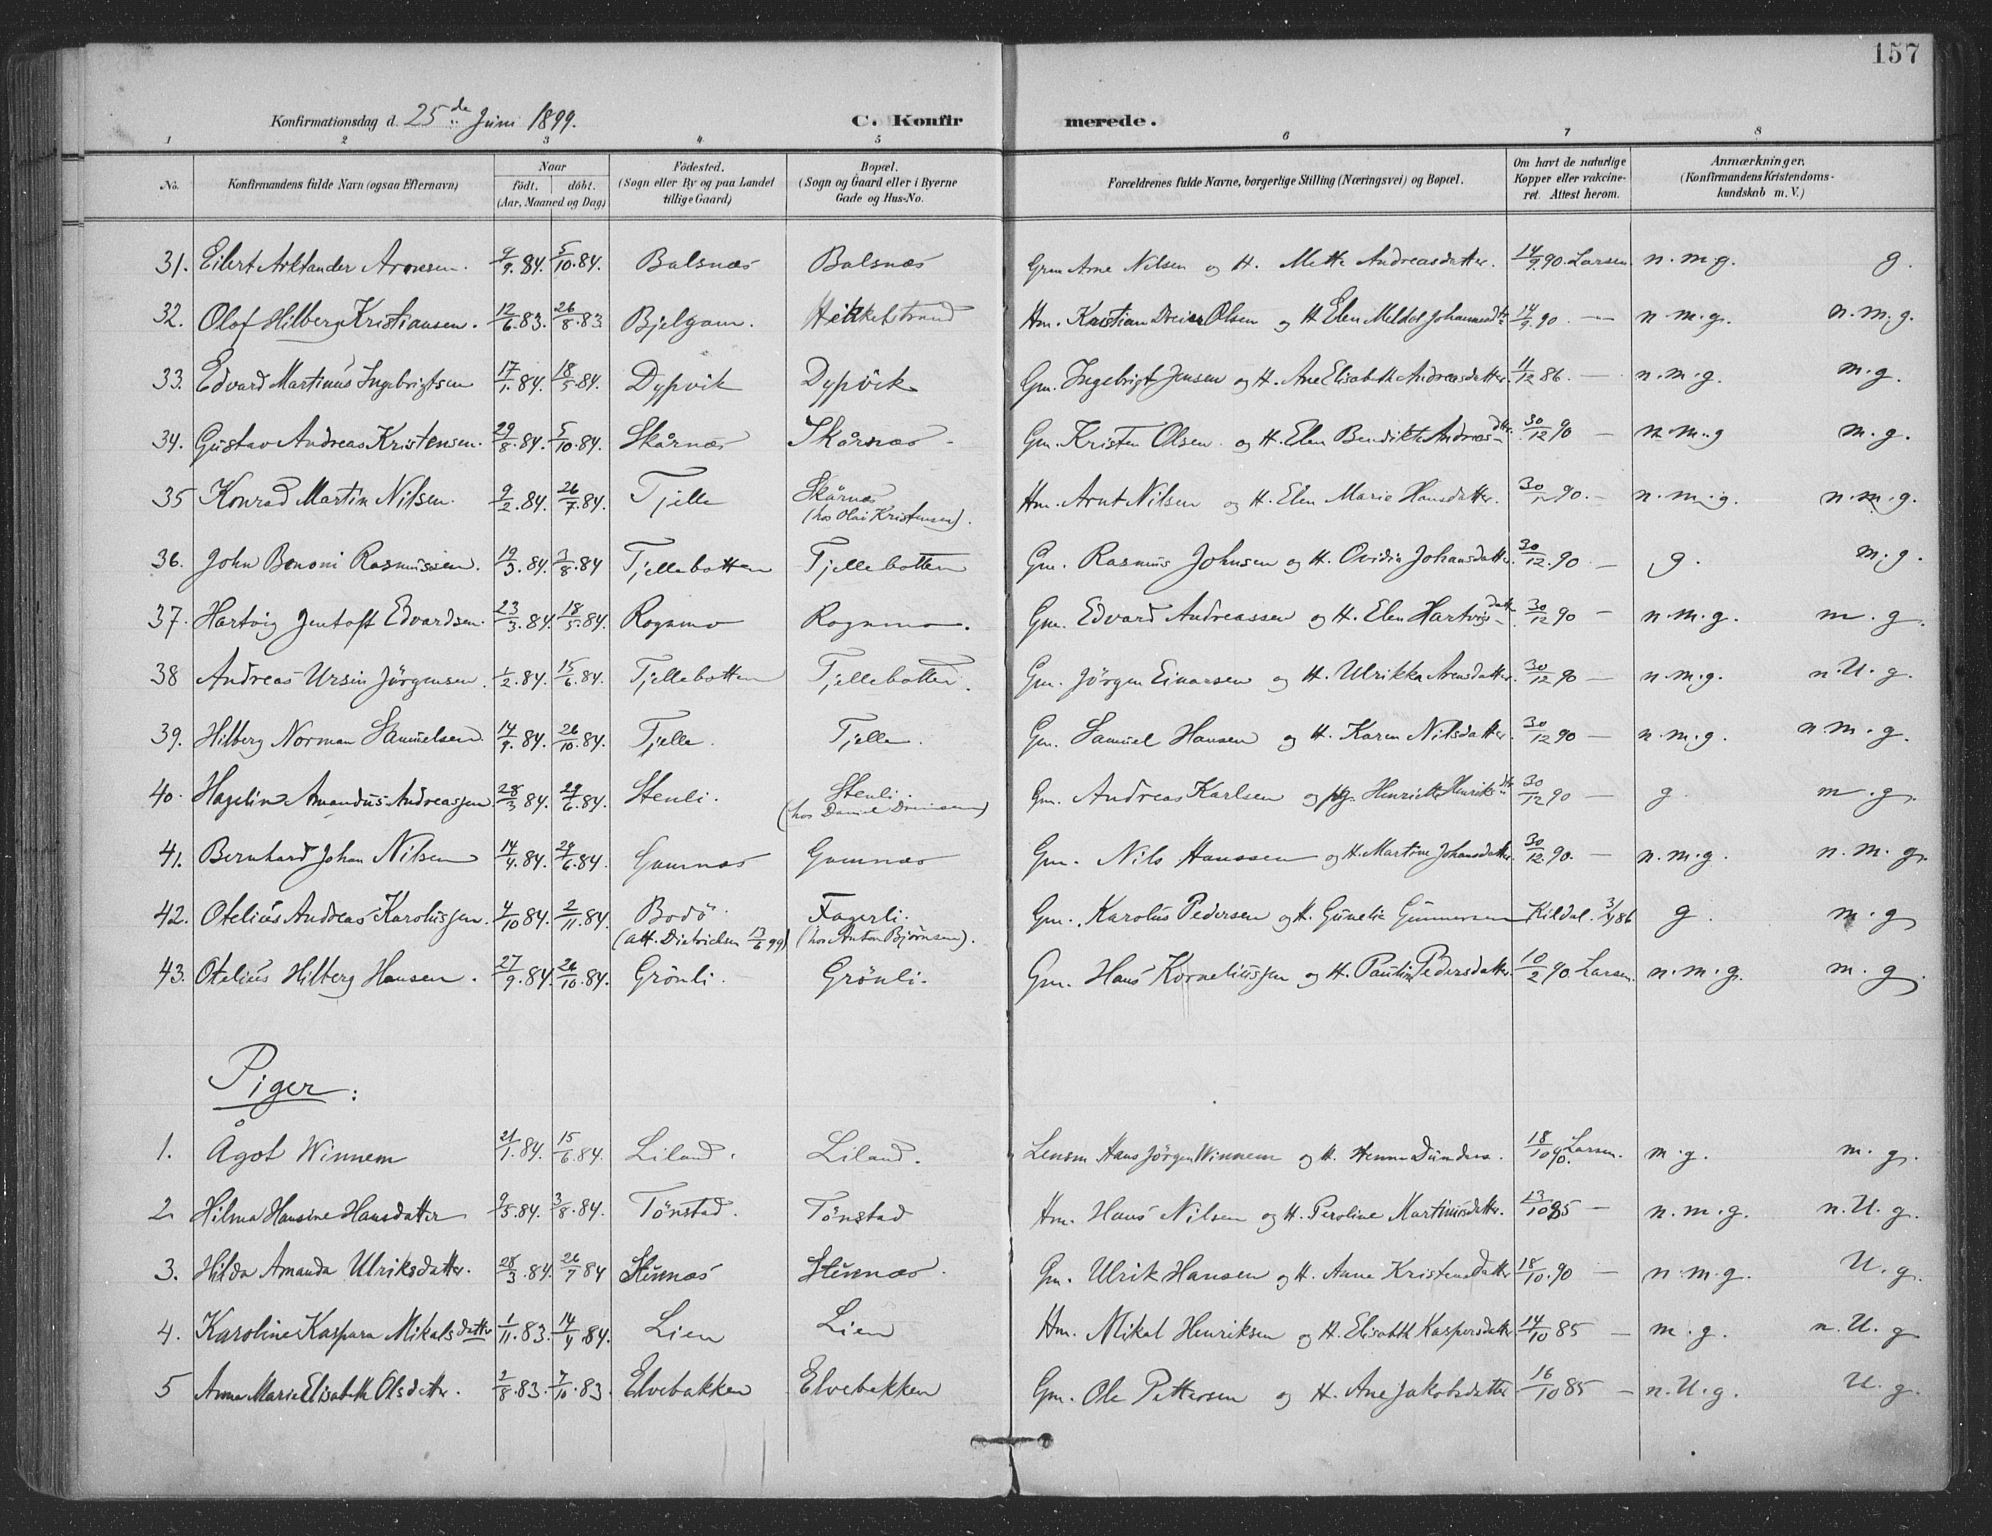 157
Konfirmationsdag d. 25de Juni 1899. C. Konfirmerede.
1 2 3 4 5 6 7 8
No. Konfirmandens fulde Navn (ogsaa Efternavn) Naar födt. döbt. (Aar, Maaned og Dag) Födested. (Sogn eller By og paa Landet tillige Gaard) Bopæl. (Sogn og Gaard eller i Byerne Gade og Hus-No. Forældrenes fulde Navne, borgerlige Stilling (Næringsvei) og Bopæl. Om havt de naturlige Kopper eller vakcineret. Attest herom. Anmærkninger. (Konfirmandens Kristendomskundskab m. V.)
31. Eilert Arktander Aronsen. 9/9.84. 5/10.84. Balsnæs Balsnæs Gm Arne Nilsen og H. Mette Andreasdatter. 14/9 90. Larsen n.m.g. g.
32. Olaf Hilberg Kristiansen. 12/6.83. 26/8.83 Bjelgam. Hekkelstrand Hm. Kristian Dreier Olsen og H. Elen Meldal Johannesdtr 14/9 90 — n.m.g. n.m.g.
33. Edvard Martinus Ingebrigtsen 17/1.84. 18/5.84. Dypvik Dypvik Gm. Ingebrigt Jensen og H. Ane Elisabeth Andreasdatter. 4/12 86. — n.m.g. m.g.
34. Gustav Andreas Kristensen. 29/8.84. 5/10.84. Skårnæs Skårnæs Gm. Kristen Olsen og H. Elen Bendikte Andreasdtr. 30/12 90 — n.m.g m.g.
35 Konrad Martin Nilsen. 9/2.84. 26/7.84. Tjelle Skårnæs Hm. Arnt Nilsen og H. Elen Marie Hansdatter. 30/12 90. — n.m.g. n.m.g.
(hos Olai Kristensen).
36. John Bononi Rasmussen. 19/3.84. 3/8.84 Tjellebotten Tjellebotten Gm. Rasmus Johnsen og H. Ovidia Johansdatter. 30/12.90. — g. m.g.
37. Hartvig Jentoft Edvardsen. 23/3.84. 18/5.84. Rognmo Rognmo. Gm. Edvard Andreassen og H. Elen Hartvigsdatter 30/12 90 — n.m.g. m.g.
38 Andreas Ursin Jörgensen. 1/2.84. 15/6.84. Tjellebotten Tjellebotten. Gm. Jörgen Einarsen og H. Ulrikka Arensdatter. 30/12 90 — n.m.g. n.U.g.
39. Hilberg Norman Samuelsen. 14/9.84. 26/10.84. Tjelle. Tjelle. Gm. Samuel Hansen og H. Karen Nilsdatter. 30/12 90 — n.m.g. n.m.g.
40. Hagelin Amandus Andreassen. 28/3 84. 29/6.84. Stenli. Stenli. Gm. Andreas Karlsen og Henriette Henriksdtr 30/12 90 — g. m.g.
41. Bernhard Johan Nilsen 14/4.84. 29/6.84. Gamnæs Gamnæs Gm. Nils Hanssen og H. Martine Johansdatter. 30/12.90. — n.m.g. n.m.g.
42. Otelius Andreas Karolussen. 4/10 84. 2/11.84. Bodö Fagerli. Gm. Karolus Pedersen og H. Gunelia Gunnersen Kildal. g. m.g
(att. Dietrichsen 13/6 99) (hos Anton Bjørnsen).
43. Otelius Hilberg Hansen. 27/9.84. 26/10.84. Grönli. Grönli. Gm. Hans Korneliussen og H. Pauline Pedersdatter. 10/2 90 Larsen. n.m.g. m.g.
Piger:
1. Ågot Winnem 21/1.84. 15/6.84. Liland. Liland. Lensm Hans Jörgen Winnem og H. 18/10 90. Larsen. m.g. m.g.
2. Hilma Hansine Hansdatter 9/5.84. 3/8.84. Tønstad. Tønstad Hm. Hans Nilsen og H. Peroline Martinusdatter. 13/10 85 — n.m.g. n.U.g.
3. Hilda Amanda Ulriksdatter. 28/3.84. 26/7 84 Stunnæs Stunnæs. Gm. Ulrik Hansen og H. Anne Kristensdatter 18/10.90 — n.m.g. U.g.
4. Karoline Kaspara Mikalsdatter 1/11.83. 14/4.84. Lien Lien Hm. Mikal Henriksen og H. Elisabeth Kaspersdatter 14/10 85 — m.g. n.U.g.
5 Anna Marie Elisabeth Olsdatter. 2/8.83. 7/10.83. Elvebakken Elvebakken Gm. Ole Pettersen og H. Ane Jakobsdatter 16/10 85 — n.U.g. U.g.